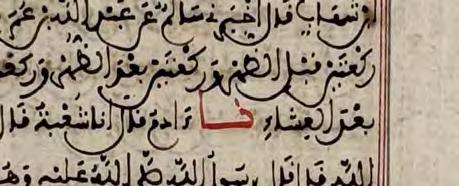 ابن شهاب قال اخبرني سالم عن عبد الله بن عمر
ركعتين قبل الظهر وركعتين بعد الظهر وركعتين
بعد العشاء حدثنا ادم قال انا شعبة قال
الله قال قال رسول الله صلى الله عليه